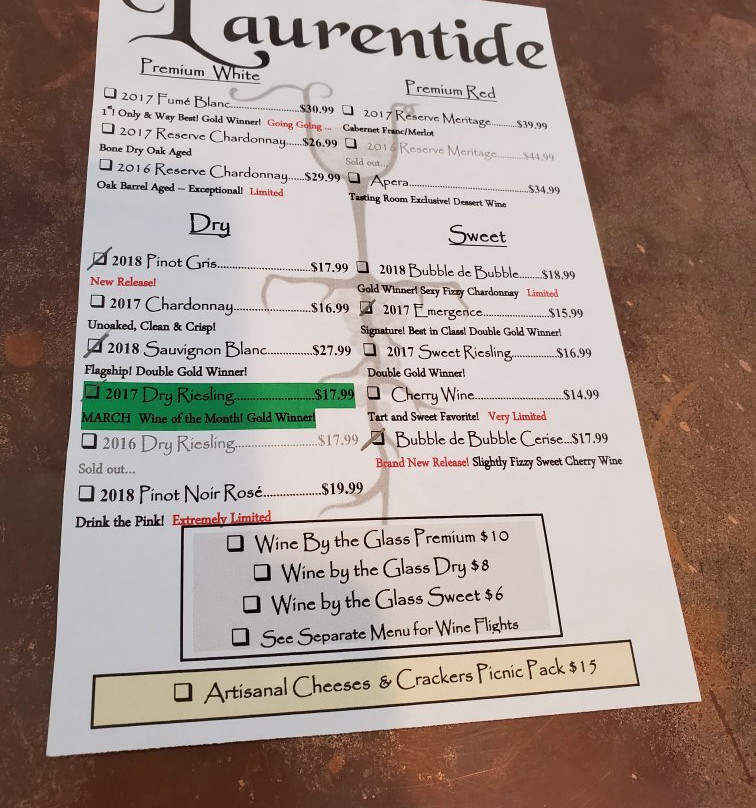 Laurentide
Premium White
☐ 2017 Fumé Blanc..................$30.99
1st! Only & Way Best! Gold Winner! Going Going ...
☐ 2017 Reserve Chardonnay.....$26.99
Bone Dry Oak Aged
☐ 2016 Reserve Chardonnay.....$29.99
Oak Barrel Aged – Exceptional! Limited
Premium Red
☐ 2017 Reserve Meritage.........$39.99
Cabernet Franc/Merlot
☐ 2016 Reserve Meritage.........$44.99
Sold out...
☐ Apera....................................$34.99
Tasting Room Exclusive! Dessert Wine
Dry
☑ 2018 Pinot Gris.......................$17.99
New Release!
☐ 2017 Chardonnay...................$16.99
Unoaked, Clean & Crisp!
☑ 2018 Sauvignon Blanc...........$27.99
Flagship! Double Gold Winner!
☐ 2017 Dry Riesling....................$17.99
MARCH Wine of the Month! Gold Winner!
☐ 2016 Dry Riesling....................$17.99
Sold out...
☐ 2018 Pinot Noir Rosé..............$19.99
Drink the Pink! Extremely Limited
Sweet
☐ 2018 Bubble de Bubble........$18.99
Gold Winner! Sexy Fizzy Chardonnay Limited
☑ 2017 Emergence..................$15.99
Signature! Best in Class! Double Gold Winner!
☐ 2017 Sweet Riesling..............$16.99
Double Gold Winner!
☐ Cherry Wine............................$14.99
Tart and Sweet Favorite! Very Limited
☑ Bubble de Bubble Cerise...$17.99
Brand New Release! Slightly Fizzy Sweet Cherry Wine
☐ Wine By the Glass Premium $10
☐ Wine by the Glass Dry $8
☐ Wine by the Glass Sweet $6
☐ See Separate Menu for Wine Flights
☐ Artisanal Cheeses & Crackers Picnic Pack $15